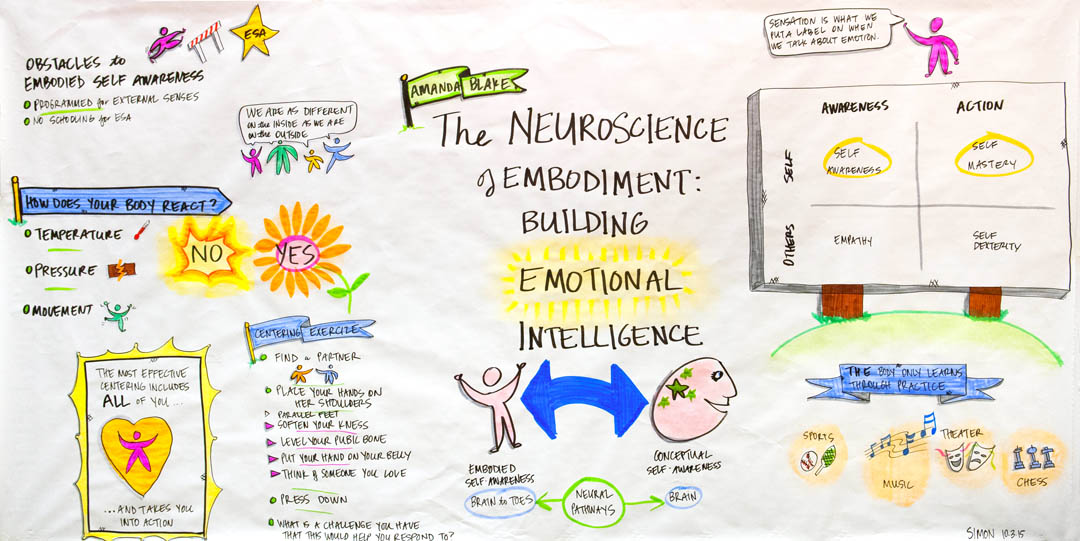 OBSTACLES to
EMBODIED SELF AWARENESS
PROGRAMMED for EXTERNAL SENSES
NO SCHOOLING for ESA
ESA
WE ARE AS DIFFERENT
on the INSIDE AS WE ARE
on the OUTSIDE
HOW DOES YOUR BODY REACT?
TEMPERATURE
PRESSURE
MOVEMENT
NO
YES
THE MOST EFFECTIVE
CENTERING INCLUDES
ALL OF YOU...
...AND TAKES YOU
INTO ACTION
CENTERING EXERCIZE
FIND a PARTNER
PLACE YOUR HANDS ON
HER SHOULDERS
PARALLEL FEET
SOFTEN YOUR KNESS
LEVEL YOUR PUBIC BONE
PUT YOUR HAND ON YOUR BELLY
THINK of SOMEONE YOU LOVE
PRESS DOWN
WHAT IS A CHALLENGE YOU HAVE
THAT THIS WOULD HELP YOU RESPOND TO?
AMANDA BLAKE
The NEUROSCIENCE
of EMBODIMENT:
BUILDING
EMOTIONAL
INTELLIGENCE
EMBODIED
SELF-AWARENESS
BRAIN to TOES
NEURAL
PATHWAYS
CONCEPTUAL
SELF-AWARENESS
BRAIN
SENSATION IS WHAT WE
PUT A LABEL ON WHEN
WE TALK ABOUT EMOTION.
AWARENESS
ACTION
SELF
SELF
AWARENESS
SELF
MASTERY
OTHERS
EMPATHY
SELF
DEXTERITY
THE BODY ONLY LEARNS
THROUGH PRACTICE
SPORTS
MUSIC
THEATER
CHESS
SIMON 10.3.15